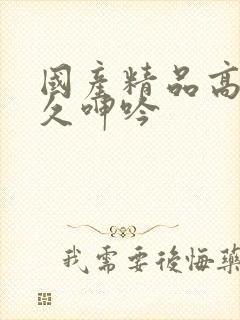 國產精品高
久呻吟
我需要後悔藥